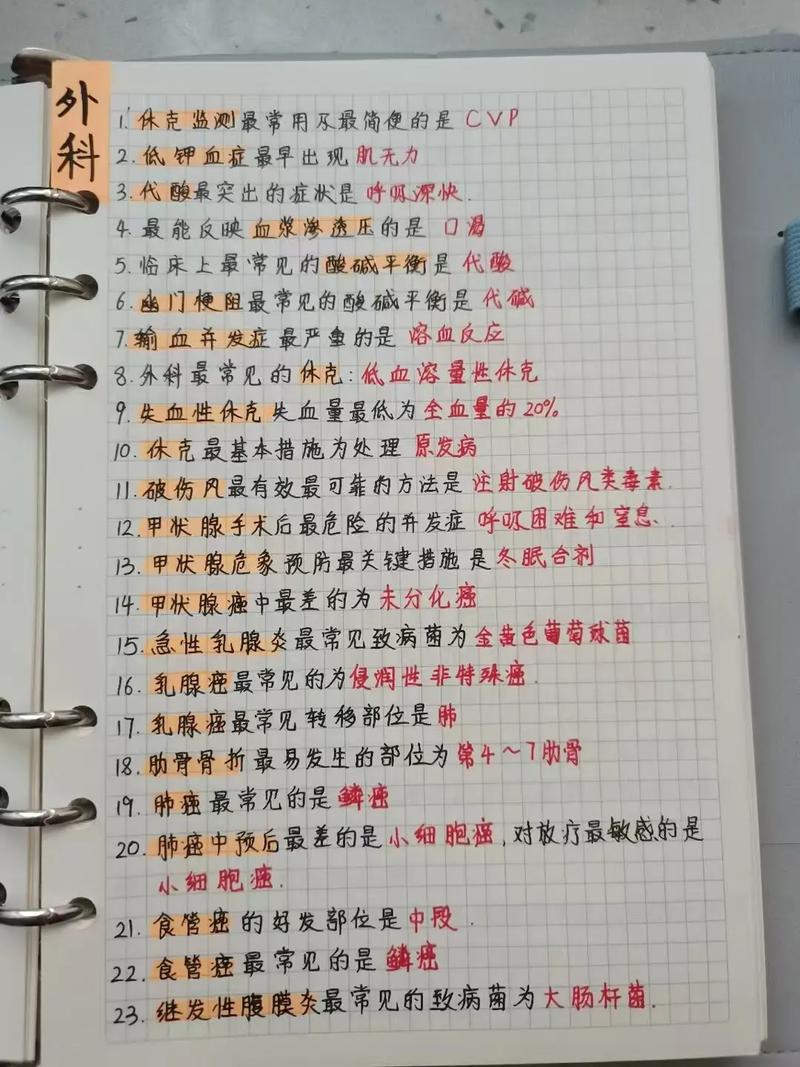 外科
1. 休克监测最常用及最简便的是 CVP
2. 低钾血症最早出现肌无力
3. 代酸最突出的症状是 呼吸深快.
4. 最能反映血浆渗透压的是 口渴
5. 临床上最常见的酸碱平衡是 代酸
6. 幽门梗阻最常见的酸碱平衡是 代碱
7. 输血并发症最严重的是 溶血反应
8. 外科最常见的休克: 低血溶量性休克
9. 失血性休克失血量最低为 全血量的20%
10. 休克最基本措施为处理 原发病
11. 破伤风最有效最可靠的方法是 注射破伤风类毒素.
12. 甲状腺手术后最危险的并发症 呼吸困难和窒息.
13. 甲状腺危象预防最关键措施是冬眠合剂
14. 甲状腺癌中最差的为未分化癌
15. 急性乳腺炎最常见致病菌为金黄色葡萄球菌
16. 乳腺癌最常见的为侵润性非特殊癌.
17. 乳腺癌最常见转移部位是肺
18. 肋骨骨折最易发生的部位为 第4～7肋骨
19. 肺癌最常见的是鳞癌
20. 肺癌中预后最差的是小细胞癌, 对放疗最敏感的是
小细胞癌.
21. 食管癌的好发部位是中段.
22. 食管癌最常见的是鳞癌
23. 继发性腹膜炎最常见的致病菌为大肠杆菌.